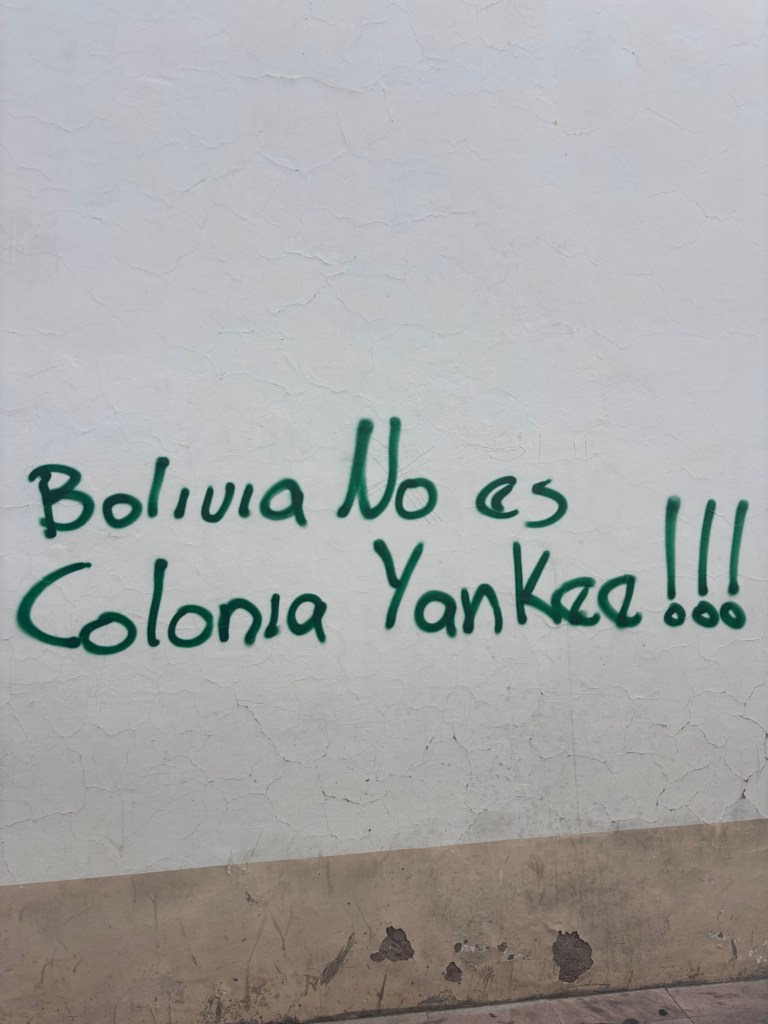 Bolivia No es
Colonia Yankee!!!